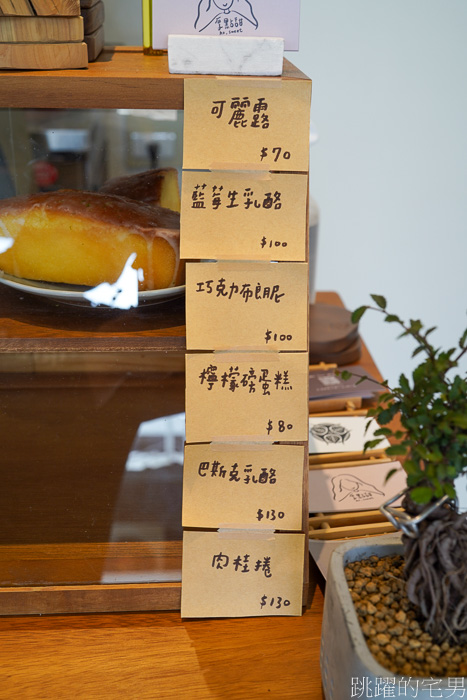 可麗露
$70
藍莓生乳酪
$100
巧克力布朗妮
$100
檸檬磅蛋糕
$80
巴斯克乳酪
$130
肉桂捲
$130
跳躍的宅男